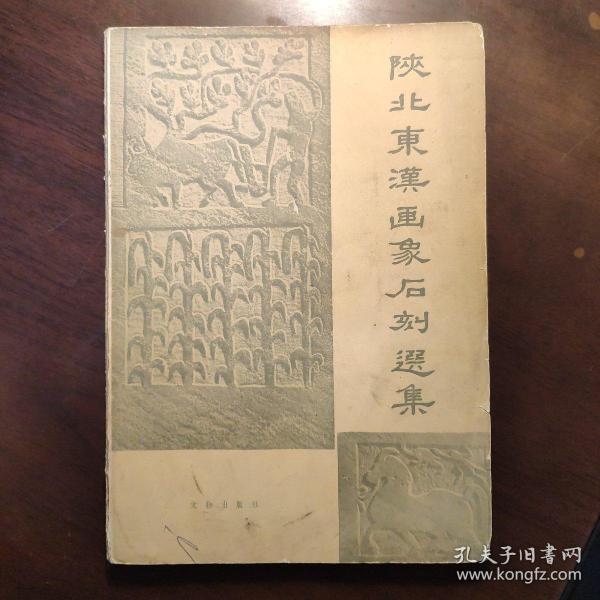 陝北東漢画象石刻選集
文物出版社
孔夫子旧書网
www.kongfz.com